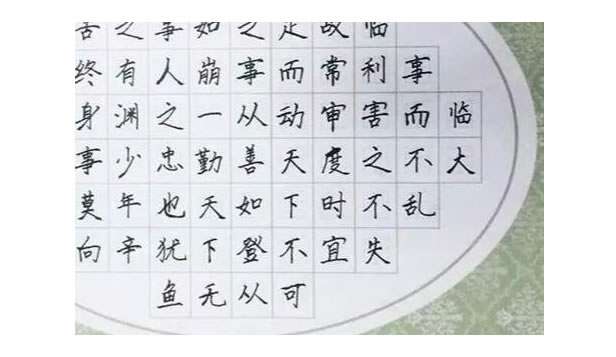 临大
事而不乱
临利害之不失
故常审度时宜
定而动天下不可
之事从善如登从
如崩一勤天下无
事人之忠也犹鱼
之有渊少年辛
苦终身事莫向